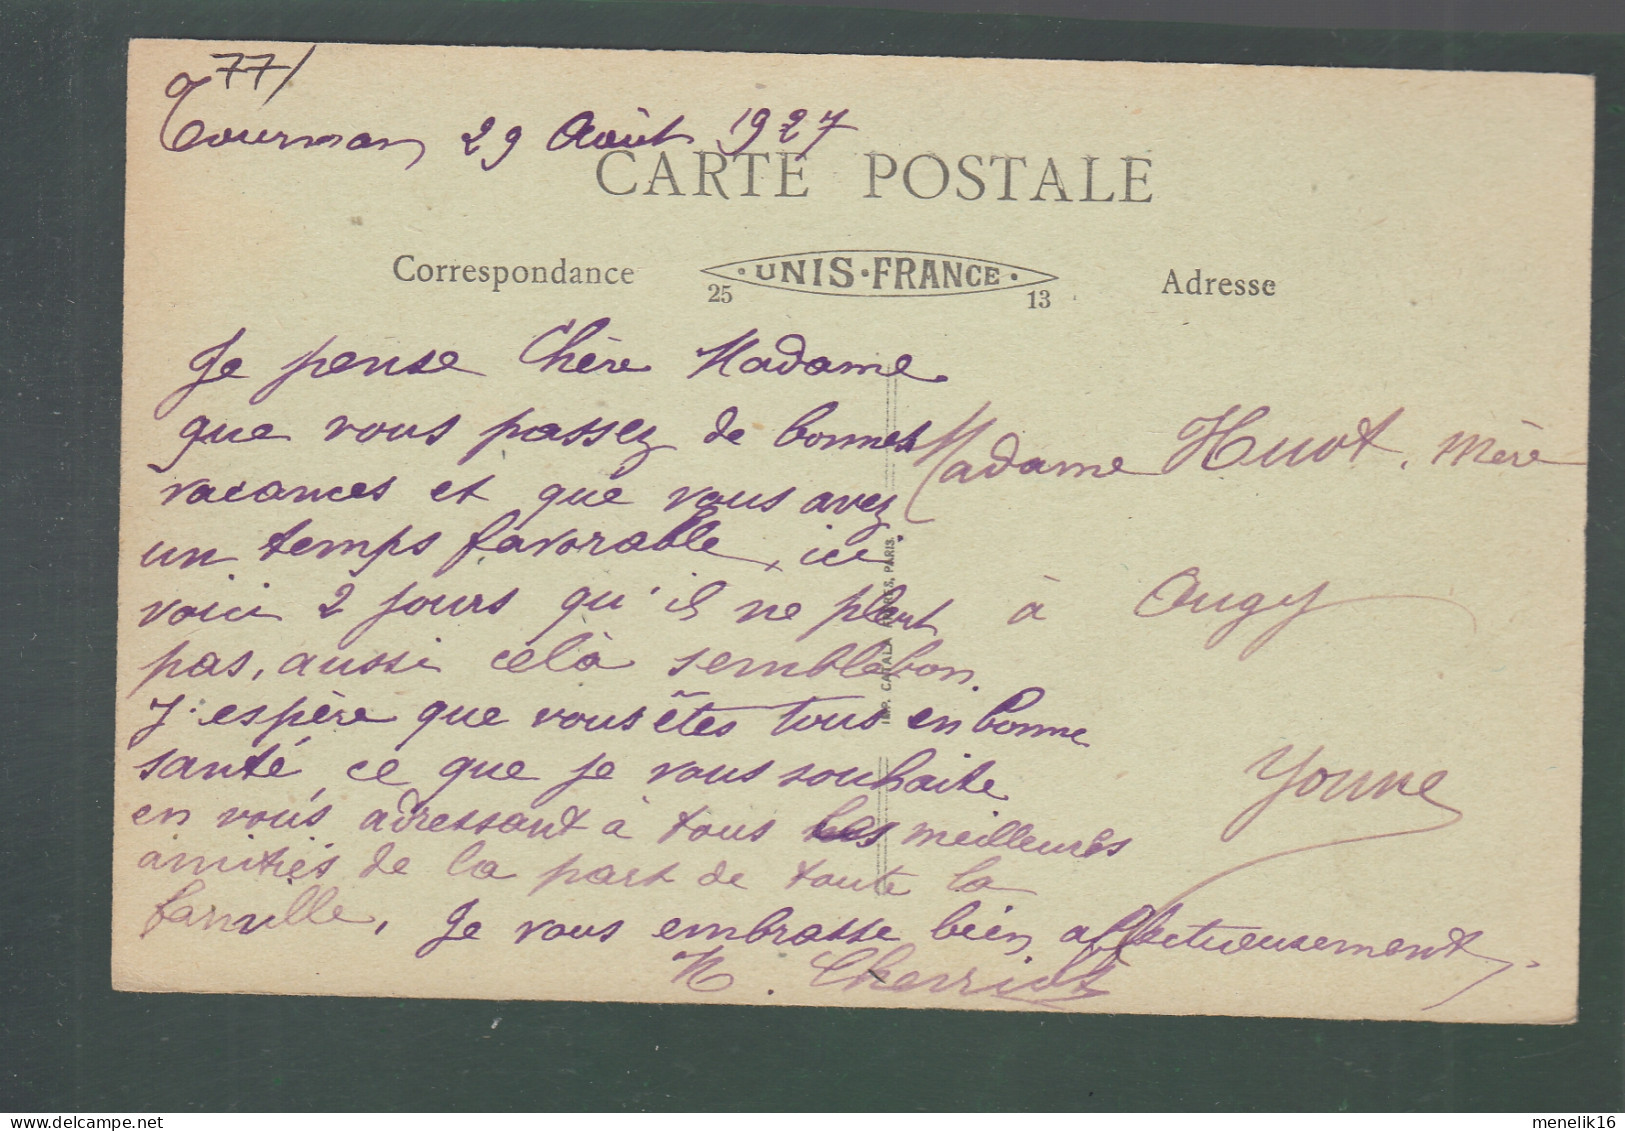 77/
Tournan 29 Août 1927
CARTE POSTALE
Correspondance
UNIS-FRANCE
25 13
Adresse
Je pense Chère Madame
que vous passez de bonnes
vacances et que vous avez
un temps favorable, ici
voici 2 jours qu'il ne pleut
pas, aussi celà semble bon.
J'espère que vous êtes tous en bonne
santé, ce que je vous souhaite
en vous adressant à tous les meilleures
amitiés de la part de toute la
famille, Je vous embrasse bien affectueusement.
Cherriot
Madame Huot, mère
à Augy
Yonne
IMP. CATALA FRÈRES, PARIS.
menelik16